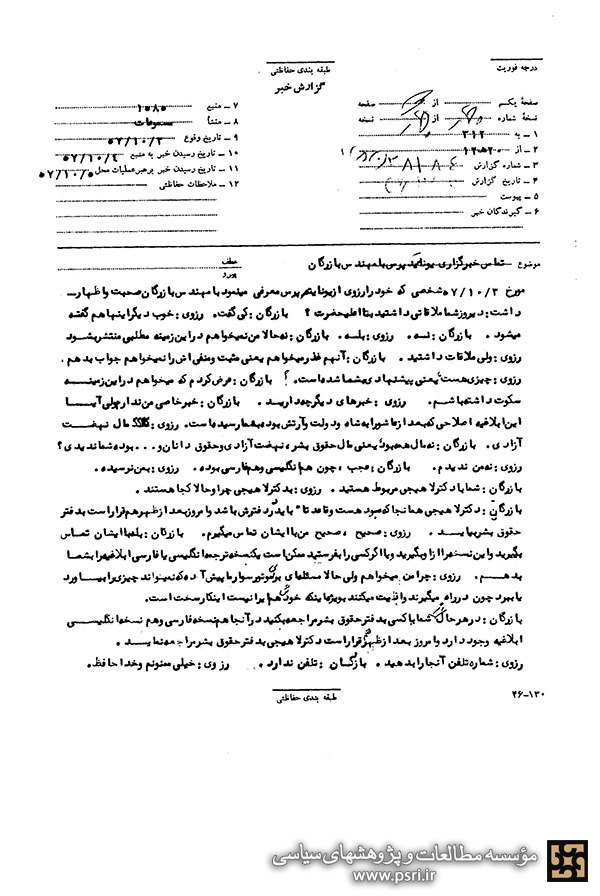 درجه فوریت
طبقه بندی حفاظتی
گزارش خبر
صفحهٔ یکم از صفحه
نسخهٔ شماره از نسخه
۱ - به ۳۱۲
۲ - از ۲۰ه۱۲
۳ - شماره گزارش
۴ - تاریخ گزارش
۵ - پیوست
۶ - گیرندگان خبر
۷ - منبع ۱۰۸۰
۸ - منشأ مسموعات
۹ - تاریخ وقوع ۵۷/۱۰/۳
۱۰ - تاریخ رسیدن خبر به منبع ۵۷/۱۰/۴
۱۱ - تاریخ رسیدن خبر برهبر عملیات محل ۵۷/۱۰/۵
۱۲ - ملاحظات حفاظتی
موضوع تماس خبرگزاری یونایتد پرس با مهندس بازرگان
عطف
پیرو
مورخ ۵۷/۱۰/۳ شخصی که خود را رزوی از یونایتد پرس معرفی مینمود با مهندس بازرگان صحبت و اظهار
داشت: دیروز شما ملاقاتی داشتید با اعلیحضرت؟ بازرگان: کی گفت. رزوی: خوب دیگر اینها هم گفته
میشود. بازرگان: نه. رزوی: بله. بازرگان: نه حالا من نمیخواهم در این زمینه مطلبی منتشر بشود
رزوی: ولی ملاقات داشتید. بازرگان: آنهم عذر میخواهم یعنی مثبت و منفی اش را نمیخواهم جواب بدهم.
رزوی: چیزی هست، یعنی پیشنهادی بشما شده است.؟ بازرگان: عرض کردم که میخواهم در این زمینه
سکوت داشته باشم. رزوی: خبرهای دیگر چه دارید. بازرگان: خبر خاصی من ندارم ولی آیا
این ابلاغیه اصلاحی که بعد از عاشورا به شاه و دولت و آرتش بوده بشما رسیده است. رزوی: مال نهضت
آزادی. بازرگان: نه مال همه بود، یعنی مال حقوق بشر، نهضت آزادی و حقوق دانان و... بوده شما ندیدی؟
رزوی: نه من ندیدم. بازرگان: عجب، چون هم انگلیسی و هم فارسی بوده. رزوی: بمن نرسیده.
بازرگان: شما با دکتر لاهیجی مربوط هستید. رزوی: بد کتر لاهیجی چرا و حالا کجا هستند.
بازرگان: دکتر لاهیجی همانجا که بود هست و قاعدتا باید در دفترش باشد و امروز بعد از ظهر هم قرار است به دفتر
حقوق بشر بیاید. رزوی: صحیح، صحیح من با ایشان تماس میگیرم. بازرگان: بله با ایشان تماس
بگیرید و این نسخه را از او بگیرید و یا اگر کسی را بفرستید ممکن است یک نسخه ترجمه انگلیسی یا فارسی ابلاغیه را بشما
بدهم. رزوی: چرا من میخواهم ولی حالا مسئله‌ای برای موتور سوار ما پیش آمده که نمیتواند چیزی را بیاورد
یا ببرد چون در راه، میگیرند و اذیت میکنند بویژه اینکه خودش هم ایرانی نیست اینکار سخت است.
بازرگان: در هر حال شما یا کسی به دفتر حقوق بشر مراجعه بکنید در آنجا هم نسخه فارسی و هم نسخه انگلیسی
ابلاغیه وجود دارد و امروز بعد از ظهر قرار است دکتر لاهیجی به دفتر حقوق بشر مراجعه نماید.
رزوی: شماره تلفن آنجا را بدهید. بازرگان: تلفن ندارد. رزوی: خیلی ممنونم و خدا حافظ.
طبقه بندی حفاظتی
۴۶-۱۳۰
مؤسسه مطالعات و پژوهشهای سیاسی
www.psri.ir